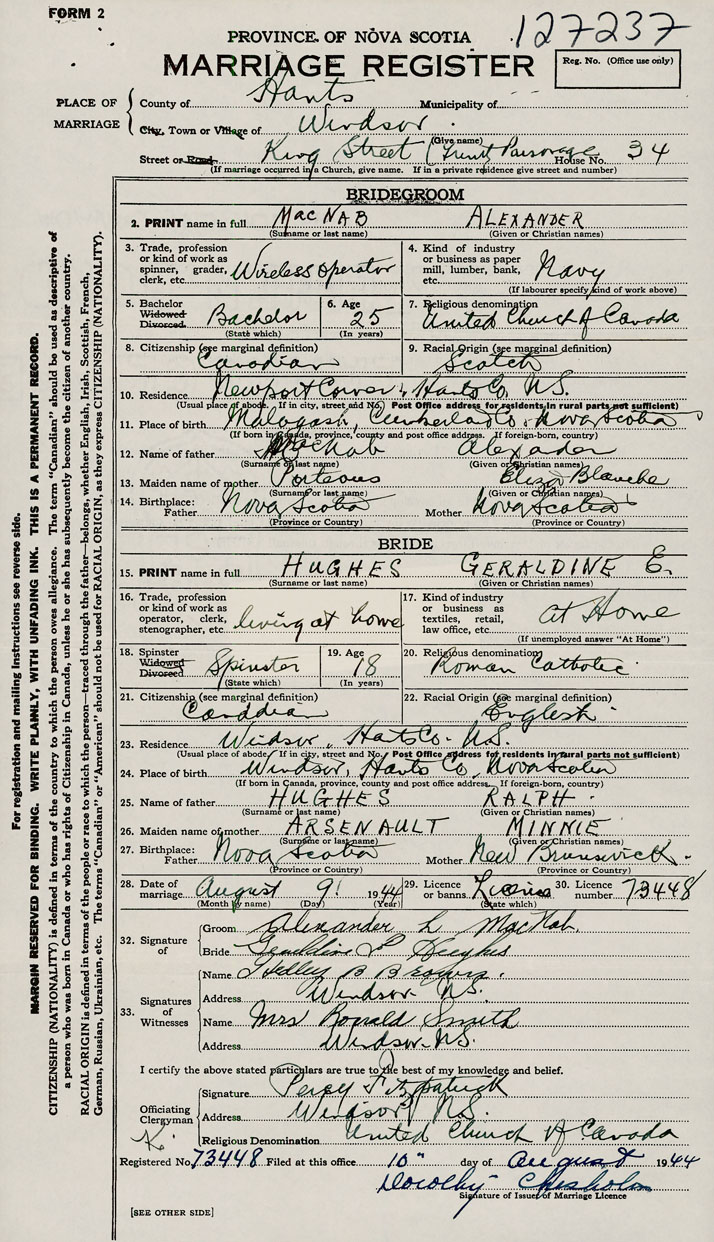 FORM 2
127237
PROVINCE OF NOVA SCOTIA
MARRIAGE REGISTER
Reg. No. (Office use only)
PLACE OF MARRIAGE
County of Hants Municipality of
City, Town or Village of Windsor
Street or Road King Street (Trinity Parsonage House No. 34
(Give name)
(If marriage occurred in a Church, give name. If in a private residence give street and number)
BRIDEGROOM
2. PRINT name in full MacNAB ALEXANDER
(Surname or last name) (Given or Christian names)
3. Trade, profession or kind of work as spinner, grader, clerk, etc. Wireless operator
4. Kind of industry or business as paper mill, lumber, bank, etc. Navy
(If labourer specify kind of work above)
5. Bachelor Widowed Divorced Bachelor
(State which)
6. Age 25
(In years)
7. Religious denomination
United Church of Canada
8. Citizenship (see marginal definition)
Canadian
9. Racial Origin (see marginal definition)
Scotch
10. Residence Newport Corner, Hants Co. N.S.
(Usual place of abode. If in city, street and No. Post Office address for residents in rural parts not sufficient)
11. Place of birth Malagash, Cumberland Co, Nova Scotia
(If born in Canada, province, county and post office address. If foreign-born, country)
12. Name of father MacNab Alexander
(Surname or last name) (Given or Christian names)
13. Maiden name of mother Porteous Eliza Blanche
(Surname or last name) (Given or Christian names)
14. Birthplace: Father Nova Scotia Mother Nova Scotia
(Province or Country) (Province or Country)
BRIDE
15. PRINT name in full HUGHES GERALDINE E.
(Surname or last name) (Given or Christian names)
16. Trade, profession or kind of work as operator, clerk, stenographer, etc. living at home
17. Kind of industry or business as textiles, retail, law office, etc. At Home
(If unemployed answer "At Home")
18. Spinster Widowed Divorced Spinster
(State which)
19. Age 18
(In years)
20. Religious denomination
Roman Catholic
21. Citizenship (see marginal definition)
Canadian
22. Racial Origin (see marginal definition)
English
23. Residence Windsor, Hants Co. N.S.
(Usual place of abode. If in city, street and No. Post Office address for residents in rural parts not sufficient)
24. Place of birth Windsor, Hants Co, Nova Scotia
(If born in Canada, province, county and post office address. If foreign-born, country)
25. Name of father HUGHES RALPH
(Surname or last name) (Given or Christian names)
26. Maiden name of mother ARSENAULT MINNIE
(Surname or last name) (Given or Christian names)
27. Birthplace: Father Nova Scotia Mother New Brunswick
(Province or Country) (Province or Country)
28. Date of marriage August 9 1944
(Month by name) (Day) (Year)
29. Licence or banns License
(State which)
30. Licence number 73448
32. Signature of
Groom Alexander L MacNab
Bride Geraldine Hughes
33. Signatures of Witnesses
Name B Brown
Address Windsor N.S.
Name Mrs Ronald Smith
Address Windsor N.S.
I certify the above stated particulars are true to the best of my knowledge and belief.
Officiating Clergyman
Signature Percy Fitzpatrick
Address Windsor N.S.
Religious Denomination United Church of Canada
Registered No. 73448 Filed at this office 10" day of August 1944
Dorothy Chisholm
Signature of Issuer of Marriage Licence
[SEE OTHER SIDE]
For registration and mailing instructions see reverse side.
MARGIN RESERVED FOR BINDING. WRITE PLAINLY, WITH UNFADING INK. THIS IS A PERMANENT RECORD.
CITIZENSHIP (NATIONALITY) is defined in terms of the country to which the person owes allegiance. The term "Canadian" should be used as descriptive of
a person who was born in Canada or who has rights of Citizenship in Canada, unless he or she has subsequently become the citizen of another country.
RACIAL ORIGIN is defined in terms of the people or race to which the person—traced through the father—belongs, whether English, Irish, Scottish, French,
German, Russian, Ukrainian, etc. The terms "Canadian" or "American" should not be used for RACIAL ORIGIN, as they express CITIZENSHIP (NATIONALITY).